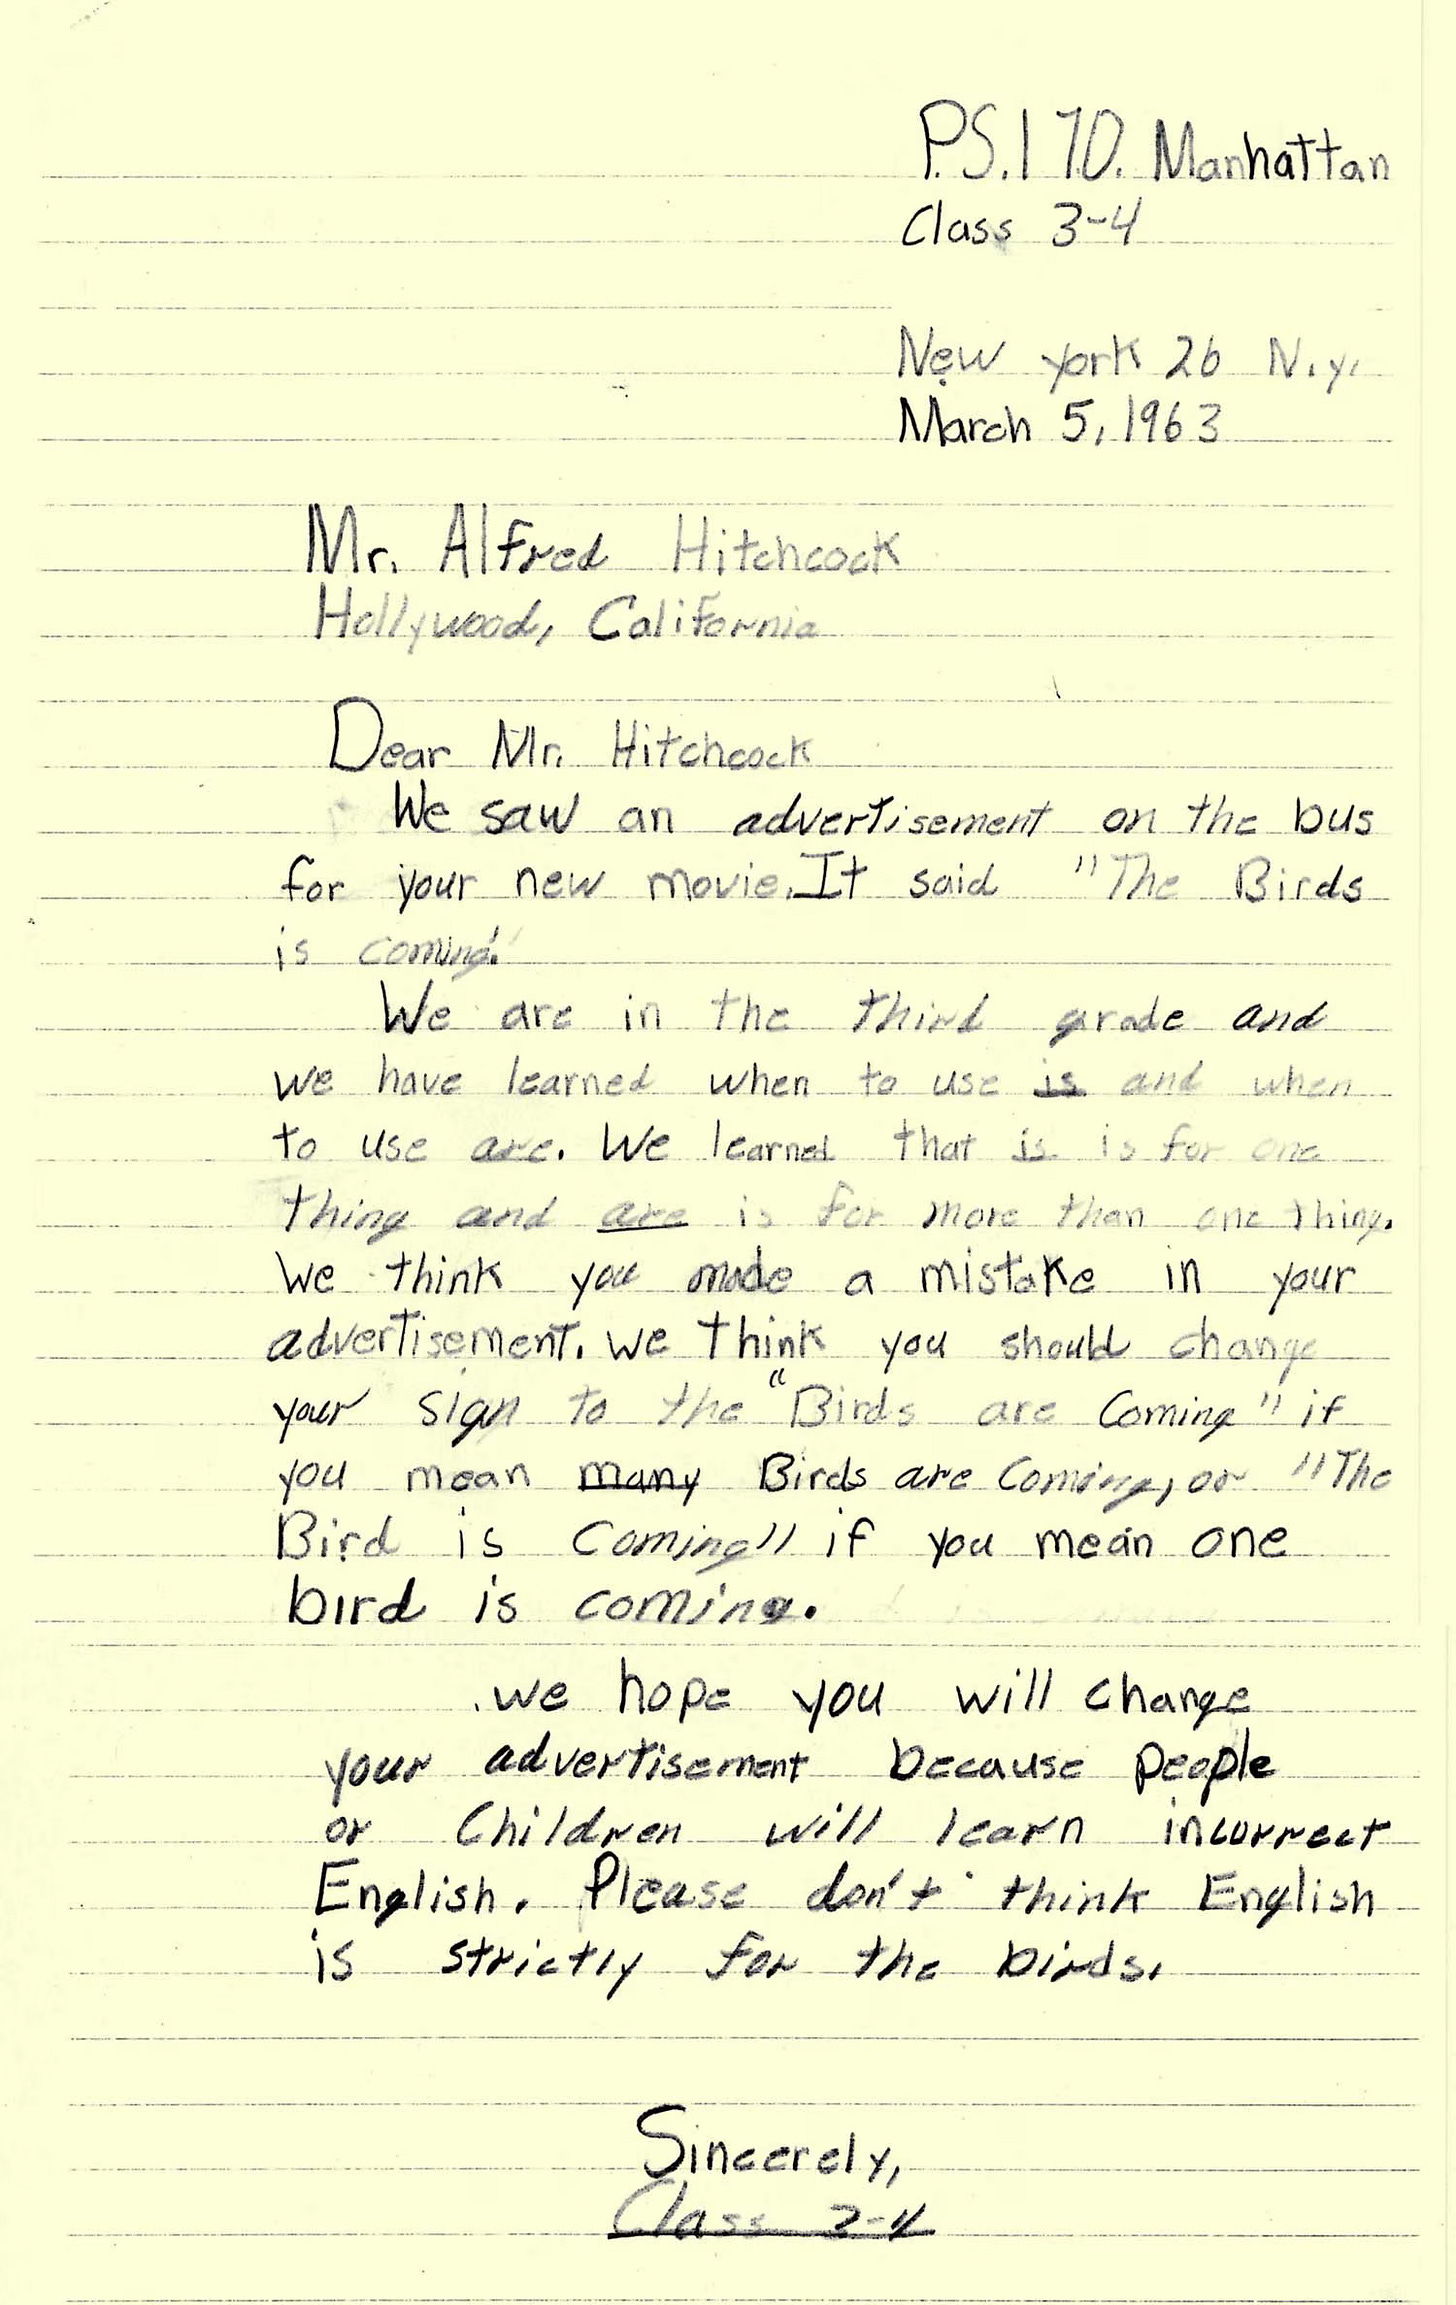 P.S.170. Manhattan
Class 3-4
New York 26 N.y.
March 5, 1963
Mr. Alfred Hitchcock
Hollywood, California
Dear Mr. Hitchcock
We saw an advertisement on the bus
for your new movie. It said "The Birds
is coming."
We are in the third grade and
we have learned when to use is and when
to use are. We learned that is is for one
thing and are is for more than one thing.
We think you made a mistake in your
advertisement. We think you should change
your sign to the "Birds are Coming" if
you mean many Birds are Coming, or "The
Bird is Coming" if you mean one
bird is coming.
we hope you will change
your advertisement because people
or Children will learn incorrect
English. Please don't think English
is strictly for the birds.
Sincerely,
Class 3-4